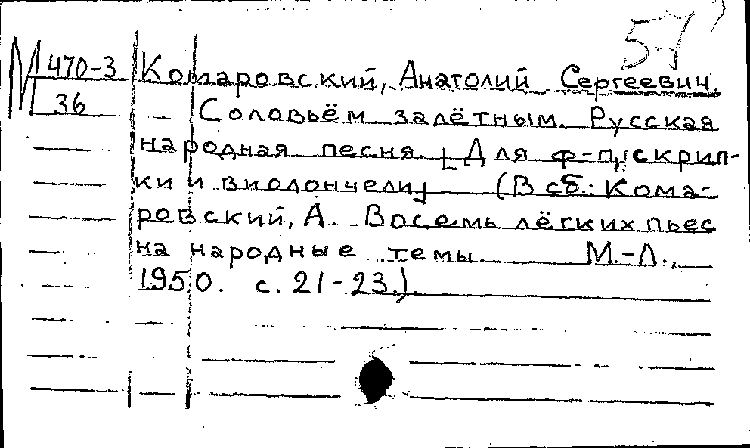 5-1
М 470-3 Комаровский, Анатолий Сергеевич.
36 Соловьём залётным. Русская
народная песня. [Для ф-п, скрип-
ки и виолончели] (В сб.: Кома-
ровский, А. Восемь лёгких пьес
на народные темы. М.-Л.,
1950. с. 21-23.)